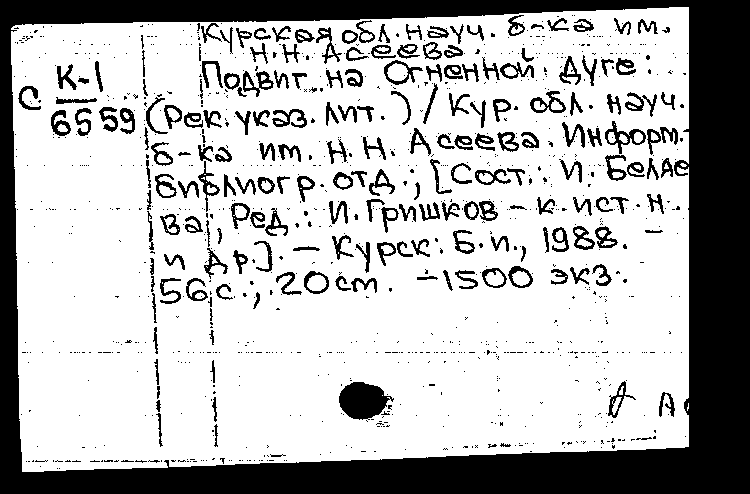 Курская обл. науч. б-ка им.
Н.Н. Асеева.
Подвиг на Огненной дуге:
С К-1
6559
(Рек. указ. лит.) / Кур. обл. науч.
б-ка им. Н.Н. Асеева. Информ.-
библиогр. отд.; [Сост.: И. Беляе
ва; Ред.: И. Гришков - к. ист. н.
и др.]. - Курск: Б.и., 1988. -
56 с.; 20 cm. - 1500 экз.